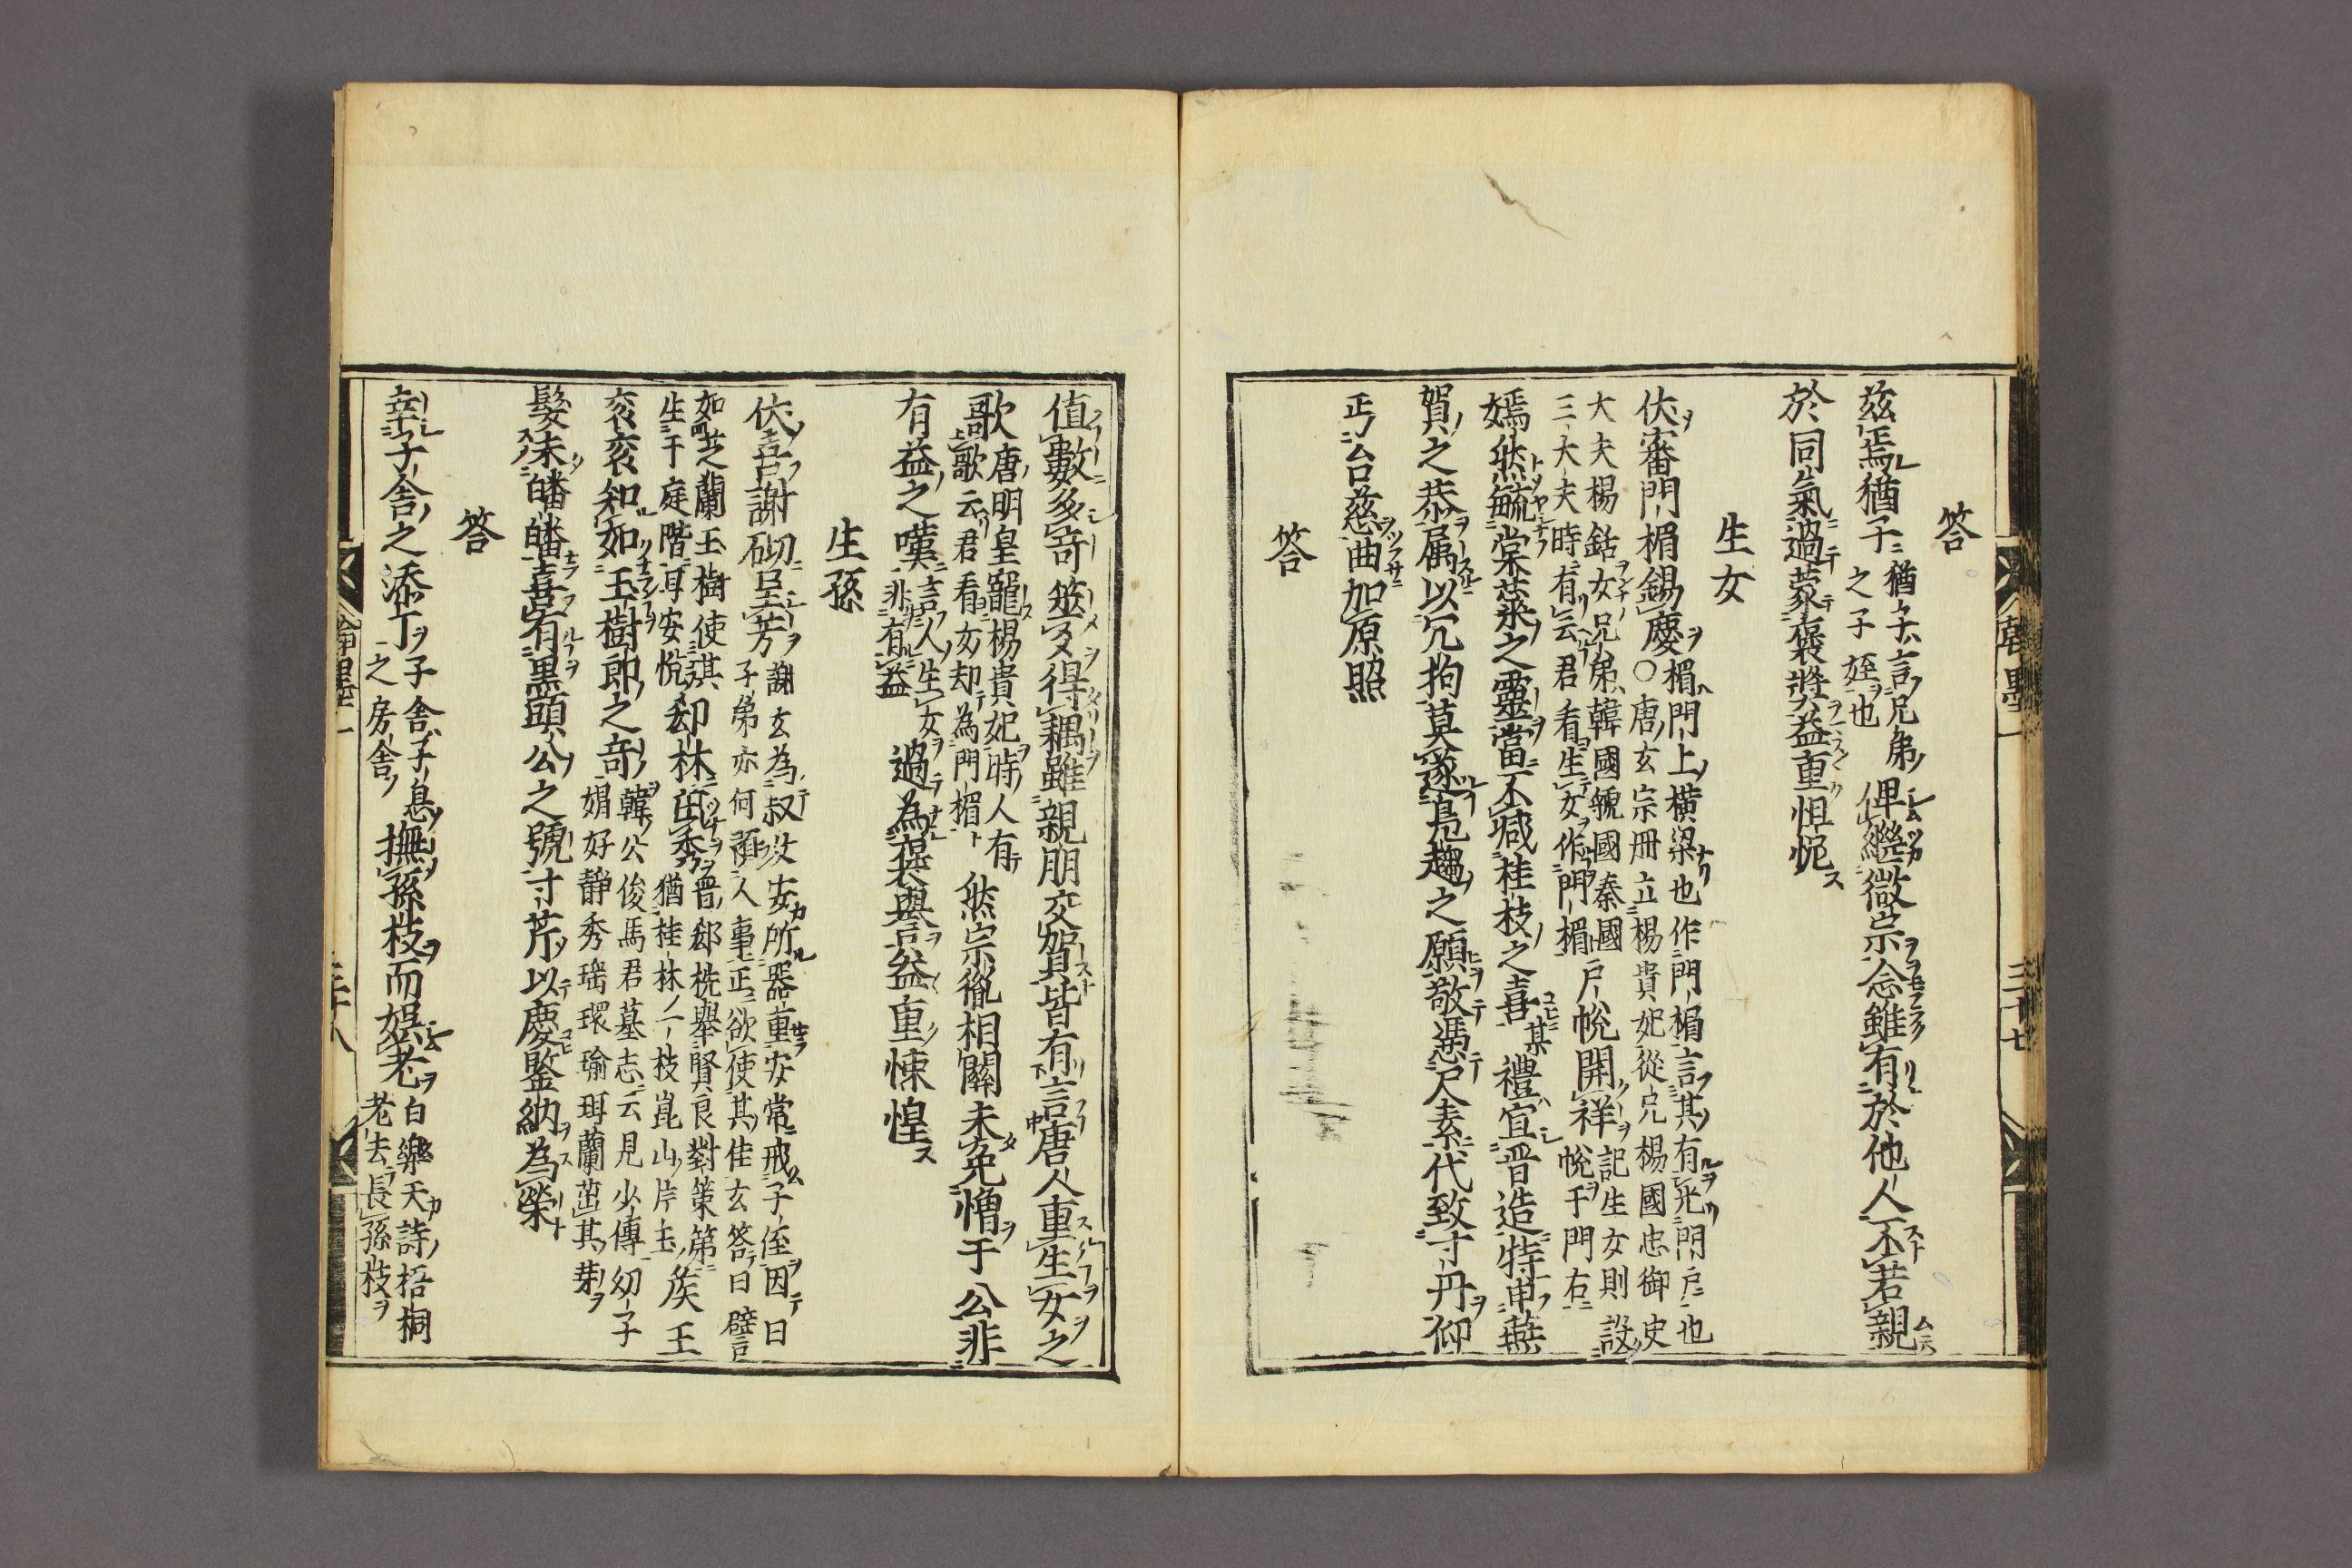 答
茲焉猶子猶子言兄弟之子姪也俾繼微宗念雖有於他人不若親
於同氣過蒙褒奬益重怛怩
生女
伏審門楣錫慶楣門上横梁也作門楣言其有光門戸也
○唐玄宗册立楊貴妃從兄楊國忠御史
大夫楊銛女兄弟韓國虢國秦國
三大夫時有云君看生女作門楣戸帨開祥記生女則設
帨于門右
嫣然毓棠蘂之靈當不减桂枝之喜某禮宜晋造特申燕
賀之恭属以冗拘莫遂鳧趨之願敬馮尺素代致寸丹仰
丐台慈曲加原照
答
值數多竒筮爻得耦雖親朋交賀皆有言唐人重生女之
歌唐明皇寵楊貴妃時人有
歌云君看女却為門楣然宗胤相關未免憎于公非
有益之嘆言人生女
非有益過為褒譽益重悚惶
生孫
伏喜謝砌呈芳謝玄為叔父安所器重安常戒子侄因曰
子弟亦何預人事正欲使其佳玄答曰譬
如芝蘭玉樹使其
生于庭階耳安悦郄林茁秀晋郄桄舉賢良對策第
猶桂林一枝崑山片玉矦王
衮衮知如玉樹郎之竒韓公俊馬君墓志云見少傳幼子
娟好静秀瑶環瑜珥蘭茁其芽
髮未皤皤喜有黒頭公之號寸芹以慶鑒納為榮
答
幸子舎之添丁子舎子息
之房舎撫孫枝而娯老白樂天詩梧桐
老去長孫枝
翰墨一
三十七
三十八